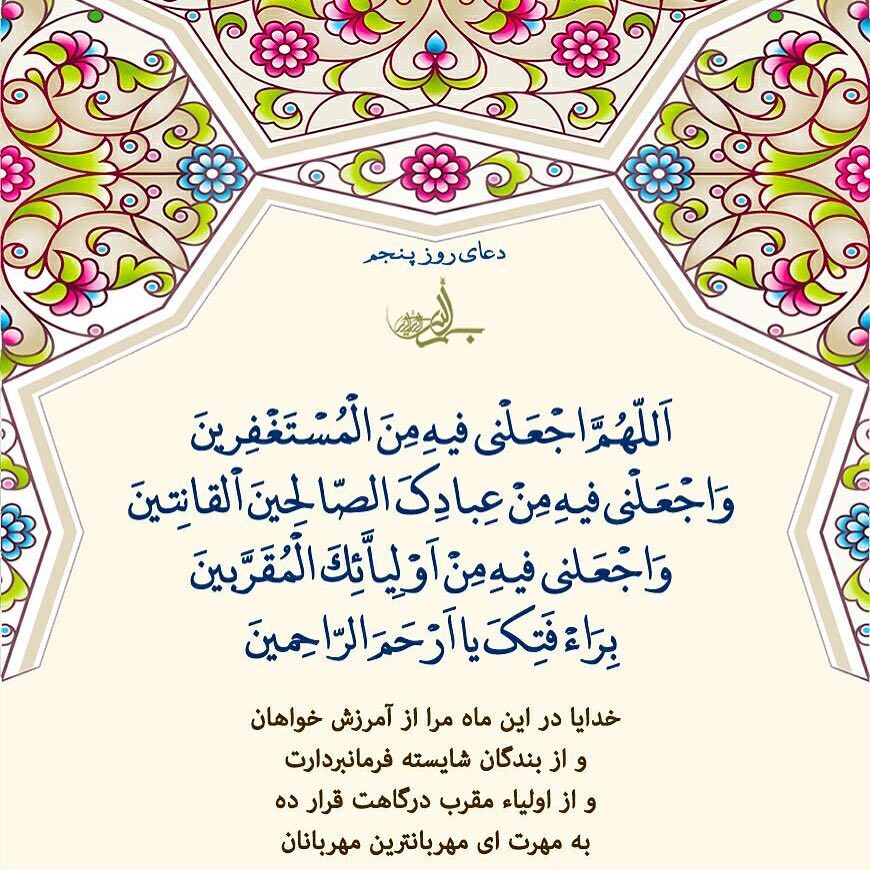 دعای روز پنجم
اَللّهُمَّ اجْعَلْنی فیهِ مِنَ الْمُسْتَغْفِرینَ
وَاجْعَلْنی فیهِ مِنْ عِبادِکَ الصّالِحینَ اْلقانِتینَ
وَاجْعَلنی فیهِ مِنْ اَوْلِیاَّئِكَ الْمُقَرَّبینَ
بِرَاءْفَتِکَ یا اَرْحَمَ الرّاحِمینَ
خدایا در این ماه مرا از آمرزش خواهان
و از بندگان شایسته فرمانبردارت
و از اولیاء مقرب درگاهت قرار ده
به مهرت ای مهربانترین مهربانان